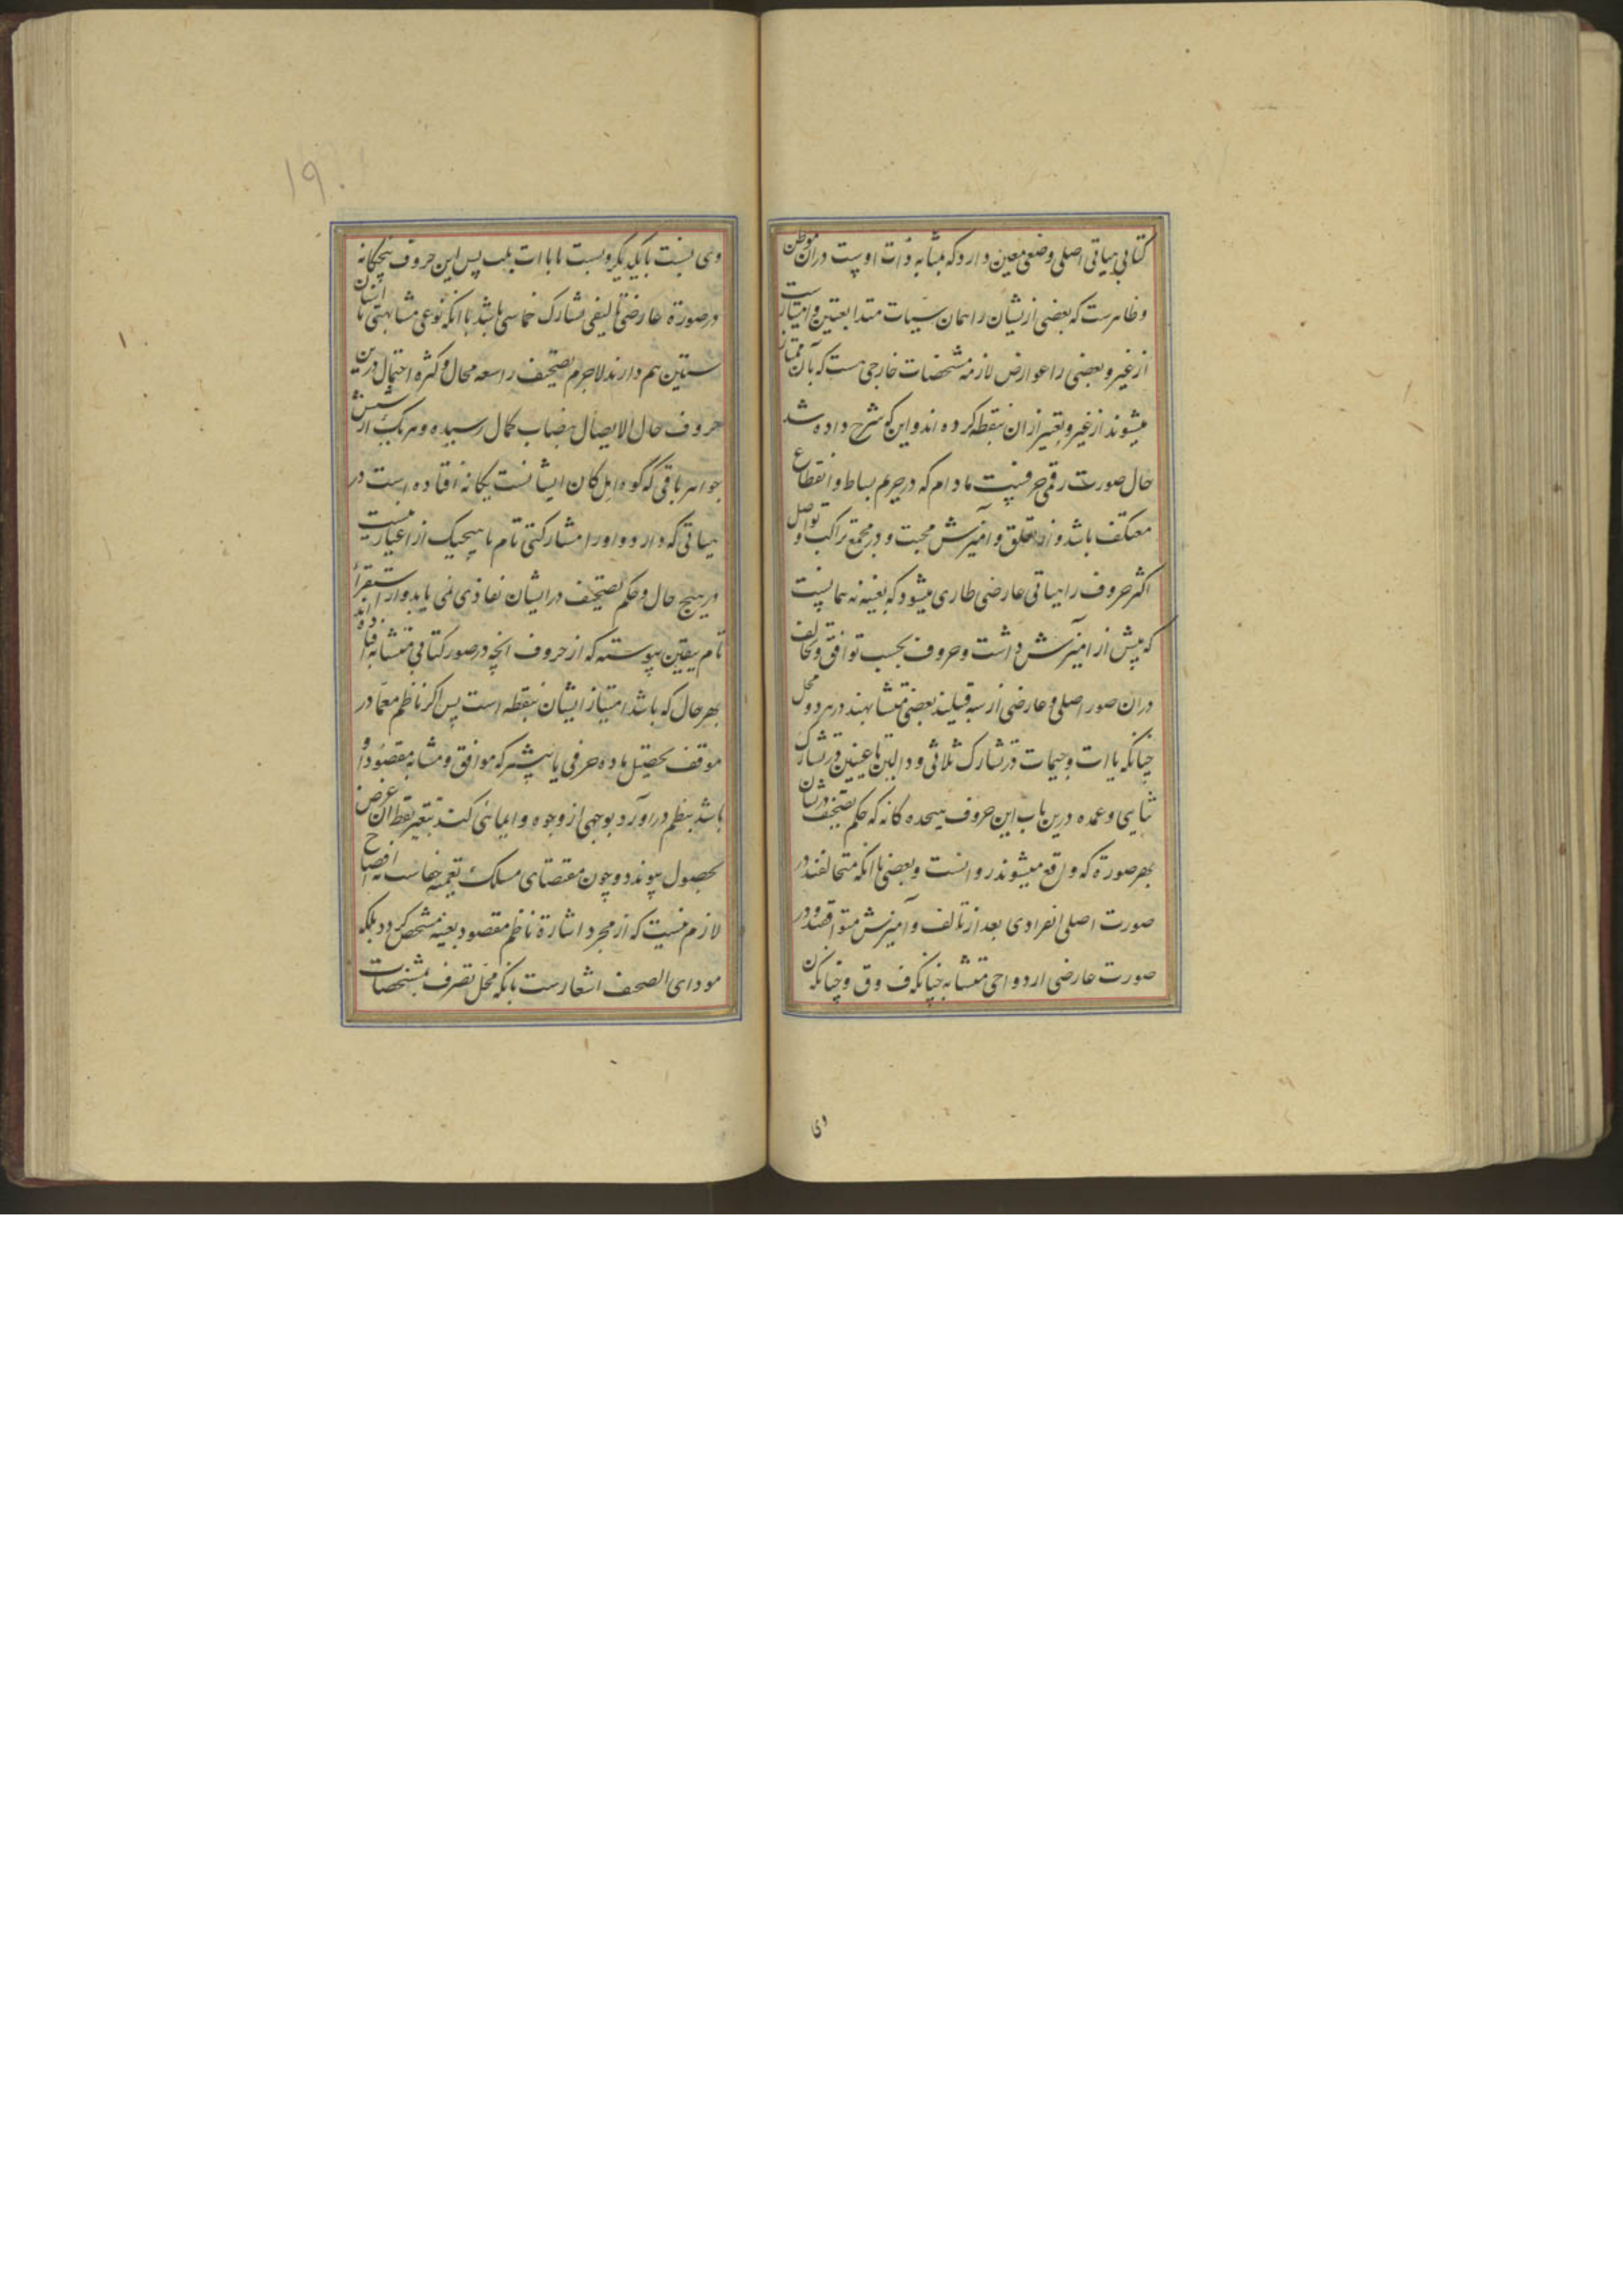 کتابی هیاتی اصلی وضعی معین دارد که بمثابه ذات اوست دران موطن
وظاهرست که بعضی ازیشان را همان سیات مبتدا بعتین وامتیازست
از غیر و بعضی را عوارض لازمه مشخصات خارجی هست که بآن ممتاز
میشوند از غیر و تعبیر ازان بنقطه کرده اند و این که شرح داده شد
حال صورت رقمی حرفیست مادام که در حریم بساط و انقطاع
معتکف باشد و از تعلق و آمیزش مجتب و در مجمع تراکب و تواصل
اکثر حروف را هیاتی عارضی طاری میشود که بعینه نه همانیست
که پیش از آمیزش داشت و حروف بحسب توافق و تخالف
دران صور اصلی و عارضی از سه قبیلند بعضی متشابهند در هر دو محل
چنانکه باات و جیمات در تشارک ثلاثی و دالین تا عینین در تشارک
ثنایی و عمده درین باب این حروف هیجده کانه که حکم تصحیف در شان
بهر صورة که واقع میشوند روانست و بعضی باانکه متخالفند در
صورت اصلی انفرادی بعد از تالف و آمیزش متوافقند و در
صورت عارضی ازدواجی متشابه چنانکه ف و ق و چنانکه ن
وی
۱۹۰
وی نسبت بایکدیگر و نسبت با باات ثلث پس این حروف پنجکانه
در صورة عارضی تالیفی تشارک خماسی باشد باانکه نوعی مشابهتی با اسنان
ستین هم دارند لاجرم تصحیف را سعه مجال و کثرة احتمال درین
حروف حال الایصال بنصاب کمال رسیده و هر یک از شش
جواهر باقی که گوه اهل کان ایشانست یکانه افتاده است در
هیاتی که دارد و او را مشارکتی تام با هیچیک از اغیار نیست
در هیچ حال و حکم تصحیف در ایشان نفاذی نمی یابد و از استقرأ
تام بیقین پیوسته که از حروف انچه در صور کتابی متشابه افتاده اند
بهر حال که باشد امتیاز ایشان بنقطه است پس اکر ناظم معما در
موقف تحصیل ماده حرفی یا بیشتر که موافق و مشابه مقصود او
باشد بنظم دراورد بوجهی از وجوه و ایمائی کند بتغییر نقط ان غرض
بحصول پیوندد و چون مقتضای مسلک تعمیه خفاست نه افصاح
لازم نیست که از مجرد اشارة ناظم مقصود بعینه مشخص کردد بلکه
مودای الصحف اشعارست بانکه محل تصرف مشخصات